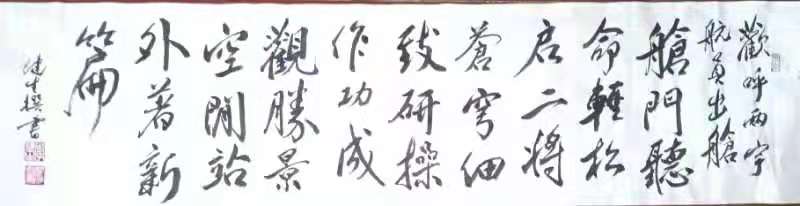 歡呼兩宇
航員出艙
艙門聽
命輕松
启二將
蒼穹細
致研操
作功成
觀勝景
空間站
外著新
篇
健生撰書